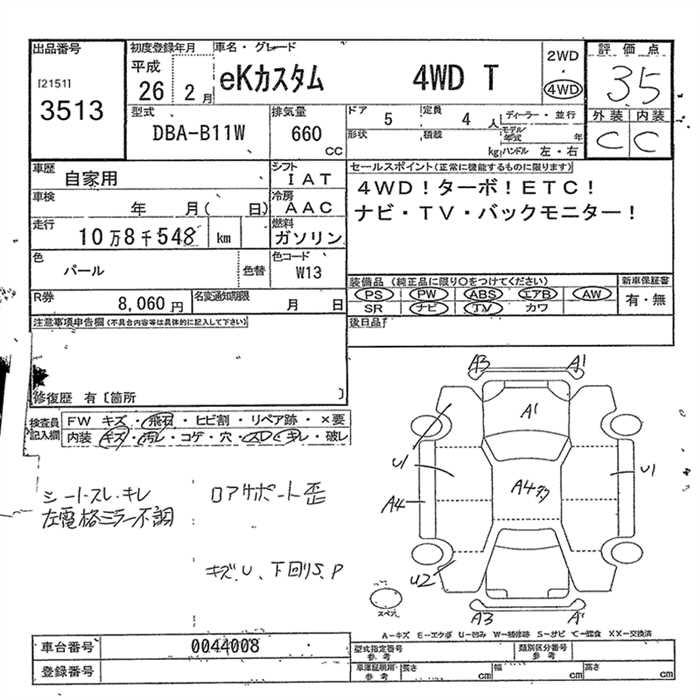 出品番号
[2151]
3513
初度登録年月
平成
26 2月
車名・グレード
eKカスタム 4WD T
2WD
・
4WD
評価点
3.5
外装 内装
C C
型式
DBA-B11W
排気量
660
CC
ドア 5 定員 4 人
形状 積載 kg
ディーラー・並行
モデル年式 年
ハンドル 左・右
車歴
自家用
シフト
IAT
車検
年 月( 日)
冷房
AAC
走行
10万8千548 km
燃料
ガソリン
色
パール
色替
色コード
W13
R券
8,060円
名変通知期限
月 日
セールスポイント(正常に機能するものに限ります)
4WD!ターボ!ETC!
ナビ・TV・バックモニター!
装備品 (純正品に限り○をつけてください)
PS PW ABS エアB AW
SR ナビ TV カワ
新車保証書
有・無
後日品
注意事項申告欄(不具合内容等は具体的に記入して下さい)
修復歴 有[箇所 ]
検査員
記入欄
FW キズ・飛石・ヒビ割・リペア跡・×要
内装 キズ・汚レ・コゲ・穴・スレ・キレ・破レ
シートスレ・キレ
左電格ミラー不調
ロアサポート歪
キズ、U、下回りS、P
A3 A1
A1
U1
U1
A4
A4タク
U2
A3 A1
スペア
A-キズ E-エクボ U-凹み W-補修跡 S-サビ C-腐食 XX-交換済
車台番号
0044008
登録番号
型式指定番号
参考
類別区分番号
参考
車庫証明用
参考
長さ cm
幅 cm
高さ cm